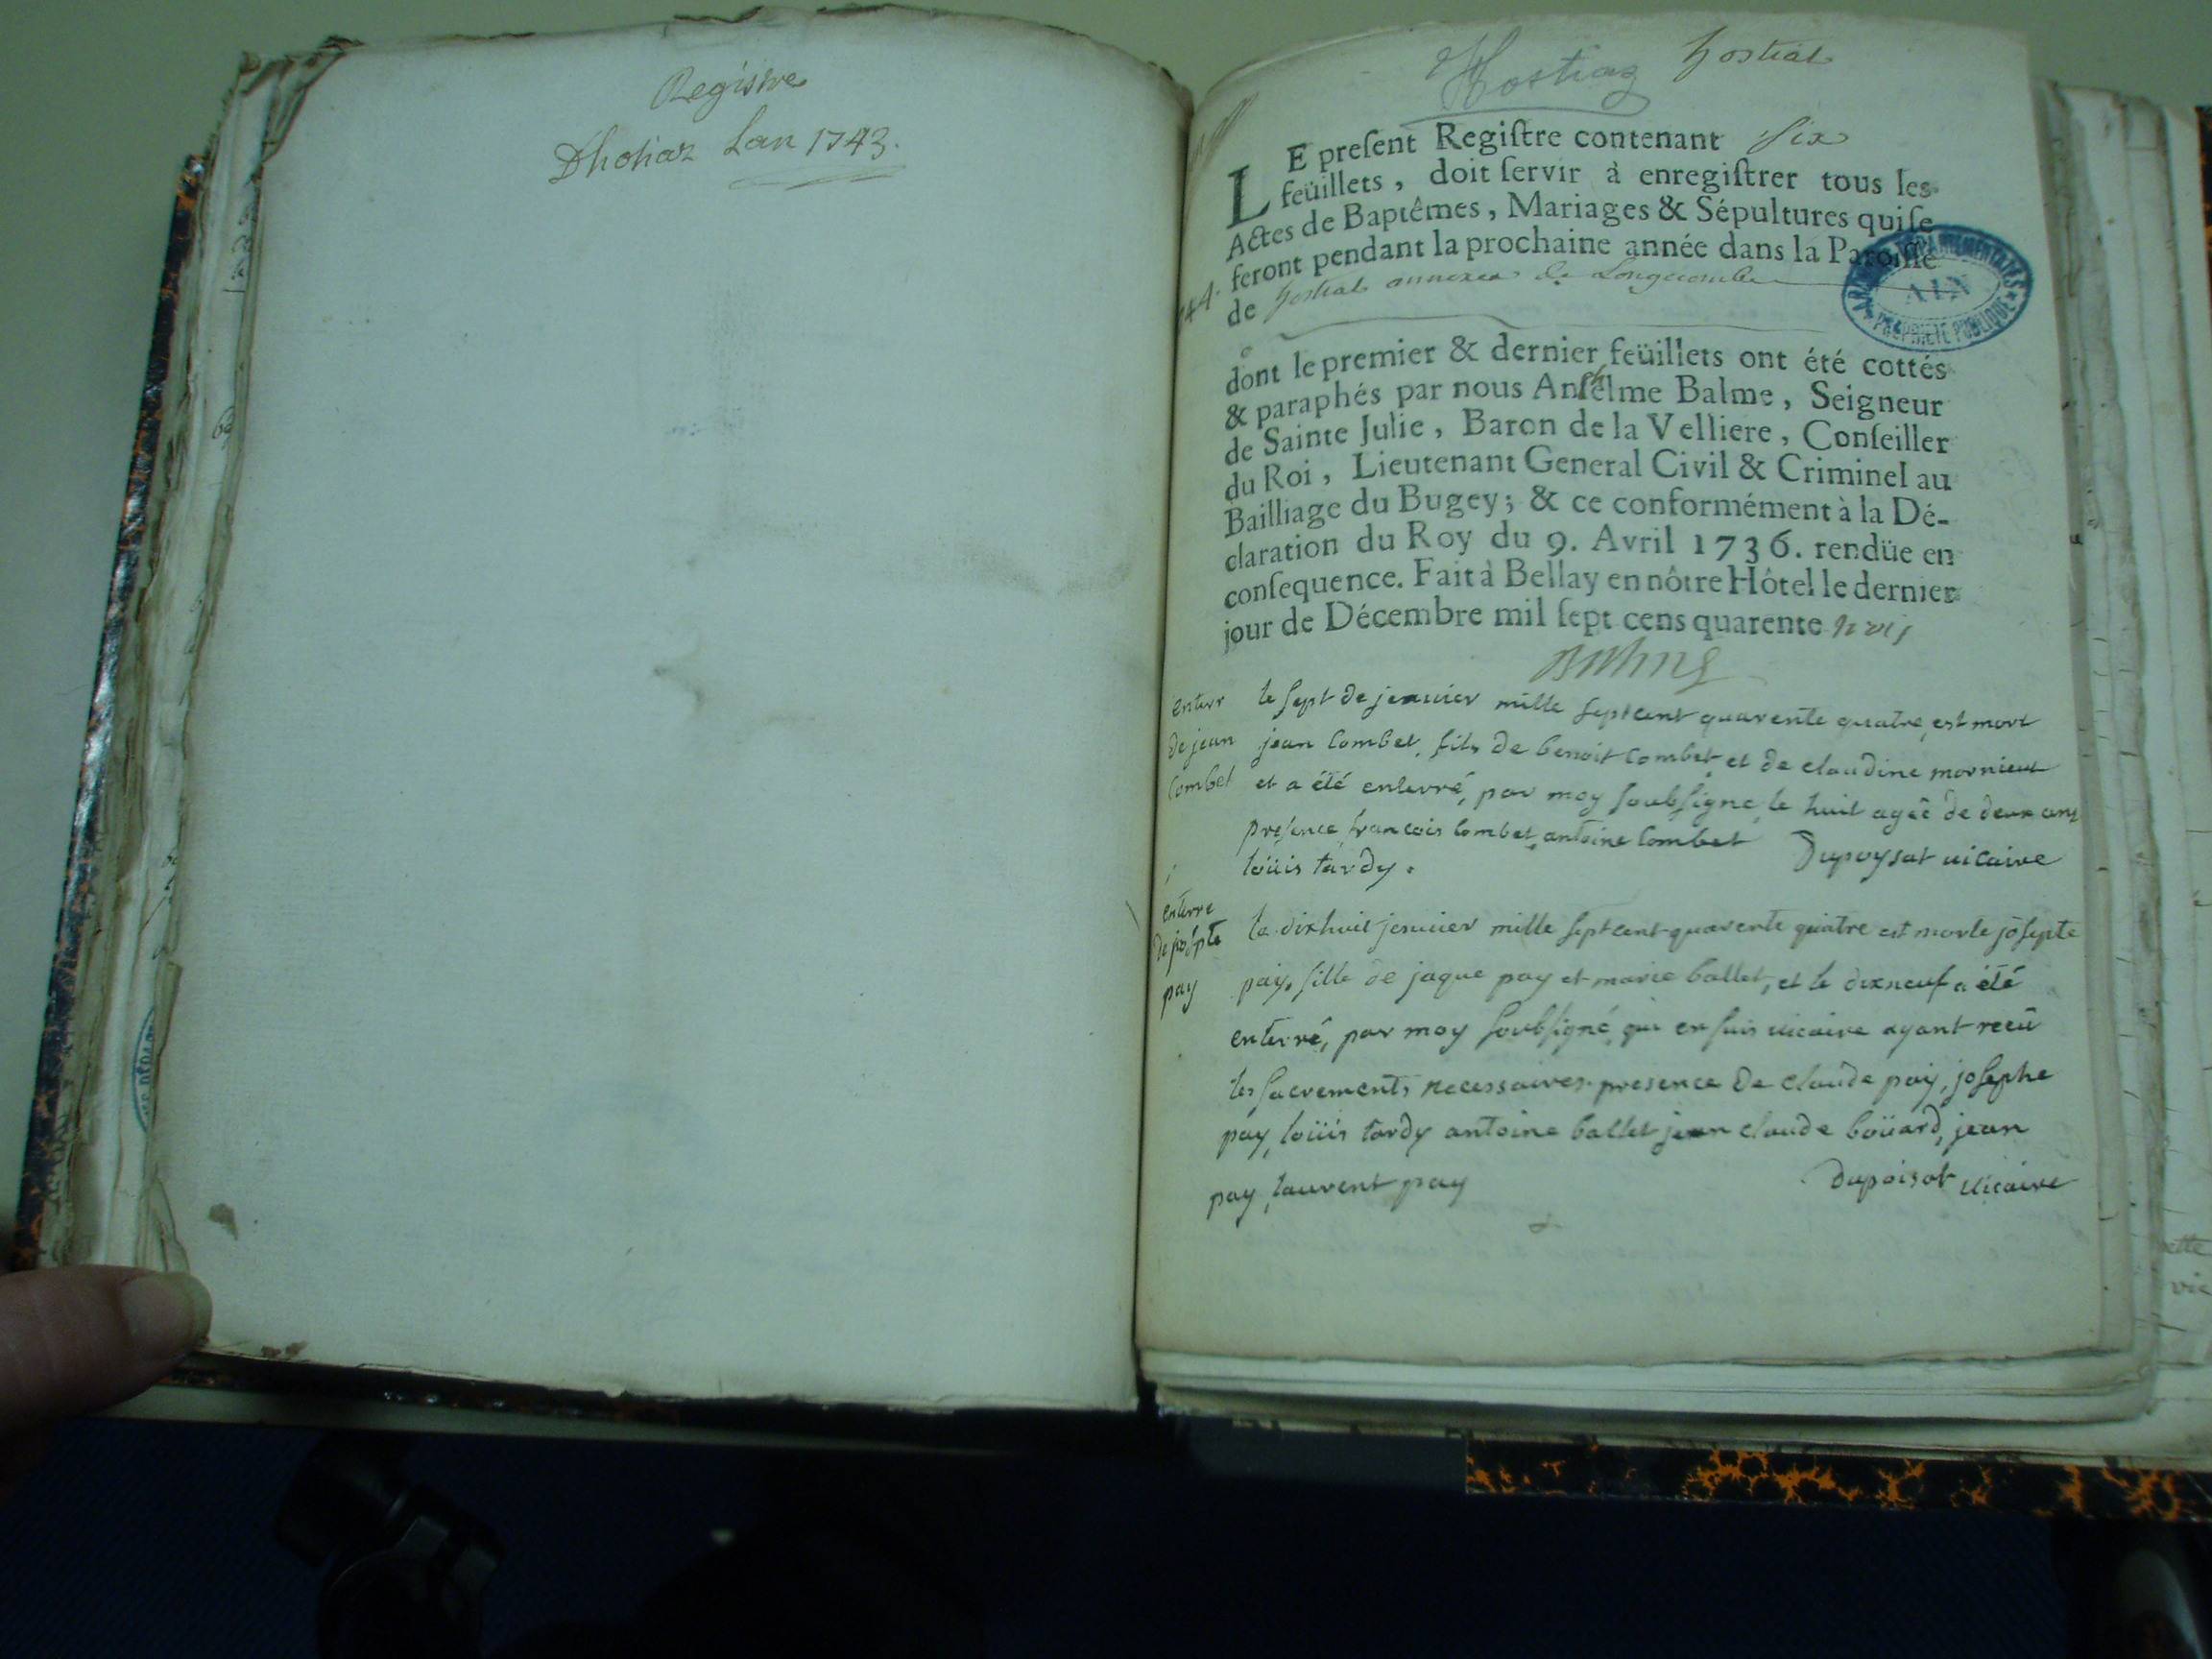 Registre
Dhotiaz Lan 1743.
Hostiaz hostial
LE preſent Regiſtre contenant six
feüillets, doit ſervir à enregiſtrer tous les
Actes de Baptêmes, Mariages & Sépultures qui ſe
feront pendant la prochaine année dans la Paroiſſe
de hostial annexea de Longecombe
ARCHIVES DÉPARTEMENTALES
AIN
PROPRIÉTÉ PUBLIQUE
dont le premier & dernier feüillets ont été cottés
& paraphés par nous Anſelme Balme, Seigneur
de Sainte Julie, Baron de la Velliere, Conſeiller
du Roi, Lieutenant General Civil & Criminel au
Bailliage du Bugey; & ce conformément à la Dé-
claration du Roy du 9. Avril 1736. rendüe en
conſequence. Fait à Bellay en nôtre Hôtel le dernier
jour de Décembre mil ſept cens quarente trois
Balme
enterr
de jean
Combet
le sept de jenuier mille septcent quarente quatre, est mort
jean Combet, fils de benoit Combet, et de claudine mornieu
et a été enterré, par moy soubsigne, le huit agée de deux ans
presence francois Combet, antoine Combet Dupoysat uicaire
loüis tardy.
enterre
de josepte
pay
le dixhuit jenuier mille septcent quarente quatre est morte josepte
pay, fille de jaque pay et marie ballet, et le dixneuf a été
enterré, par moy soubsigné, qui en suis uicaire ayant recû
les sacrements necessaires. presence de claude pay, josephe
pay, loüis tardy antoine ballet jean claude boüard, jean
pay, laurent pay dupoisat uicaire